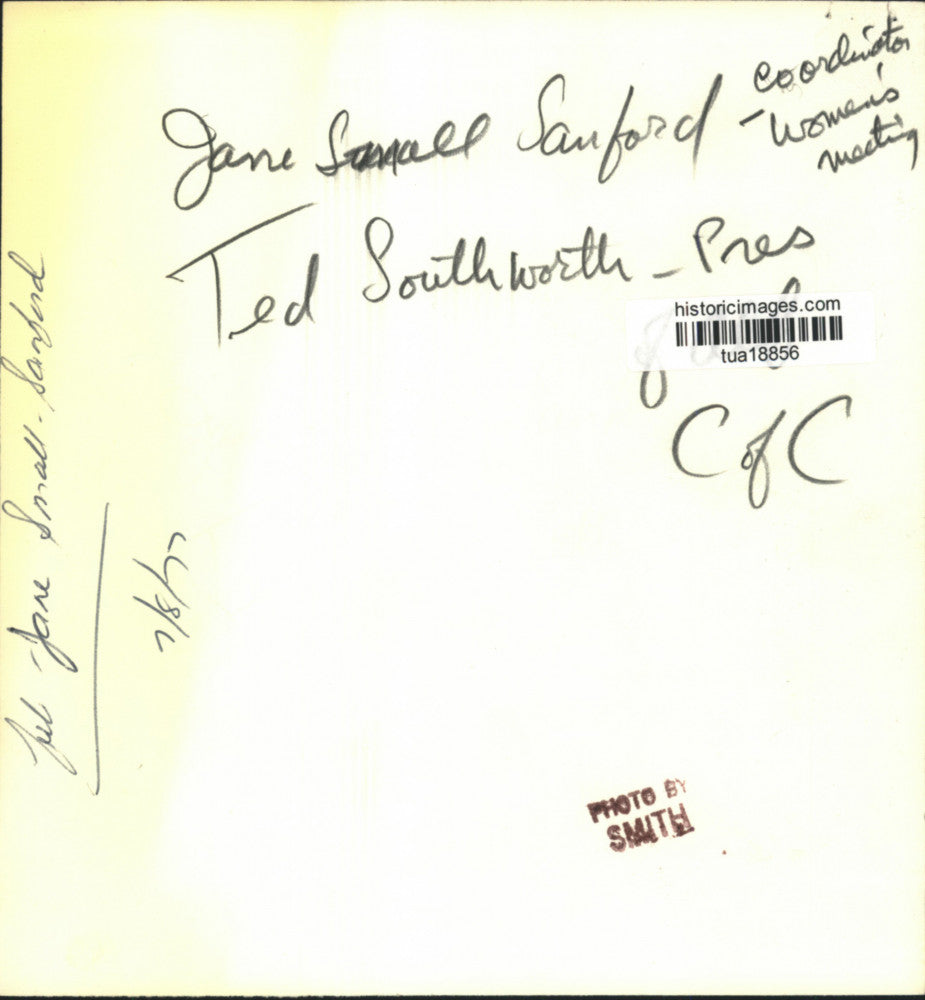 Jane Small Sanford
coordinator
- Women's
meeting
Ted Southworth - Pres
historicimages.com
tua18856
C of C
Jane Small - Sanford
7/8/77
PHOTO BY
SMITH